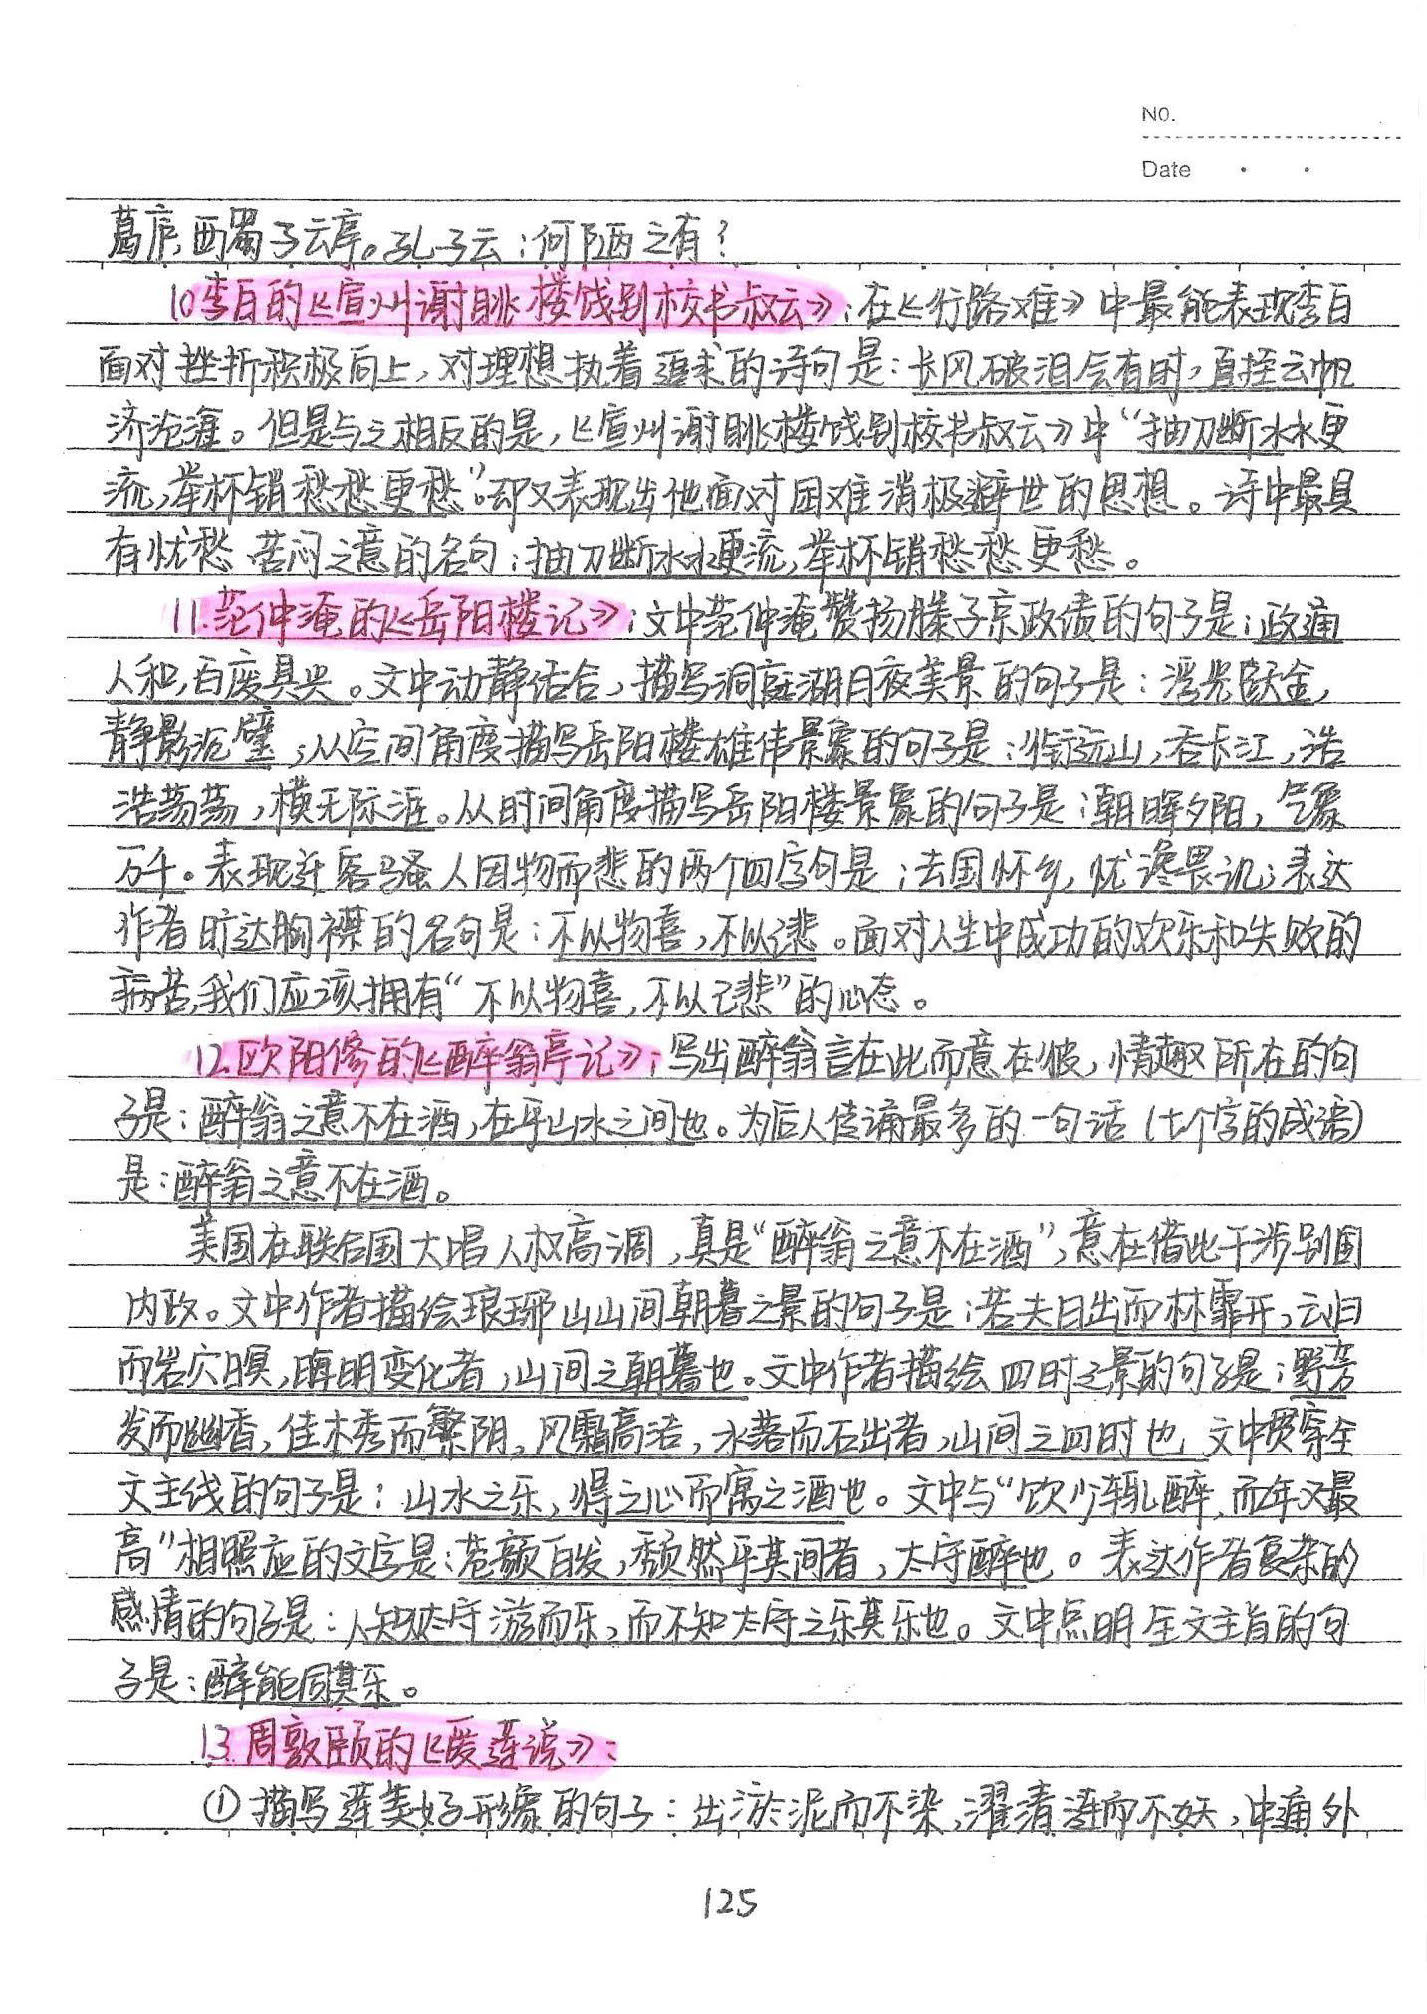 No.
Date
葛庐，西蜀子云亭。孔子云：何陋之有？
10李白的《宣州谢朓楼饯别校书叔云》：在《行路难》中最能表现李白
面对挫折积极向上，对理想执着追求的诗句是：长风破浪会有时，直挂云帆
济沧海。但是与之相反的是，《宣州谢朓楼饯别校书叔云》中“抽刀断水水更
流，举杯销愁愁更愁”。却又表现出他面对困难消极避世的思想。诗中最具
有忧愁苦闷之意的名句：抽刀断水水更流，举杯销愁愁更愁。
11.范仲淹的《岳阳楼记》：文中范仲淹赞扬滕子京政绩的句子是：政通
人和，百废具兴。文中动静结合，描写洞庭湖月夜美景的句子是：浮光跃金，
静影沉璧；从空间角度描写岳阳楼雄伟景象的句子是：衔远山，吞长江，浩
浩荡荡，横无际涯。从时间角度描写岳阳楼景象的句子是：朝晖夕阴，气象
万千。表现迁客骚人因物而悲的两个四字句是：去国怀乡，忧谗畏讥；表达
作者旷达胸襟的名句是：不以物喜，不以己悲。面对人生中成功的欢乐和失败的
病苦，我们应该拥有“不以物喜，不以己悲”的心态。
12.欧阳修的《醉翁亭记》：写出醉翁言在此而意在彼，情趣所在的句
子是：醉翁之意不在酒，在乎山水之间也。为后人传诵最多的一句话（七个字的成语）
是：醉翁之意不在酒。
美国在联合国大唱人权高调，真是“醉翁之意不在酒”，意在借此干涉别国
内政。文中作者描绘琅琊山山间朝暮之景的句子是：若夫日出而林霏开，云归
而岩穴暝，晦明变化者，山间之朝暮也。文中作者描绘四时之景的句子是：野芳
发而幽香，佳木秀而繁阴，风霜高洁，水落而石出者，山间之四时也，文中贯穿全
文主线的句子是：山水之乐，得之心而寓之酒也。文中与“饮少辄醉，而年又最
高”相照应的文字是：苍颜白发，颓然乎其间者，太守醉也。表达作者复杂的
感情的句子是：人知从太守游而乐，而不知太守之乐其乐也。文中点明全文主旨的句
子是：醉能同其乐。
13.周敦颐的《爱莲说》：
①描写莲美好形象的句子：出淤泥而不染，濯清涟而不妖，中通外
125